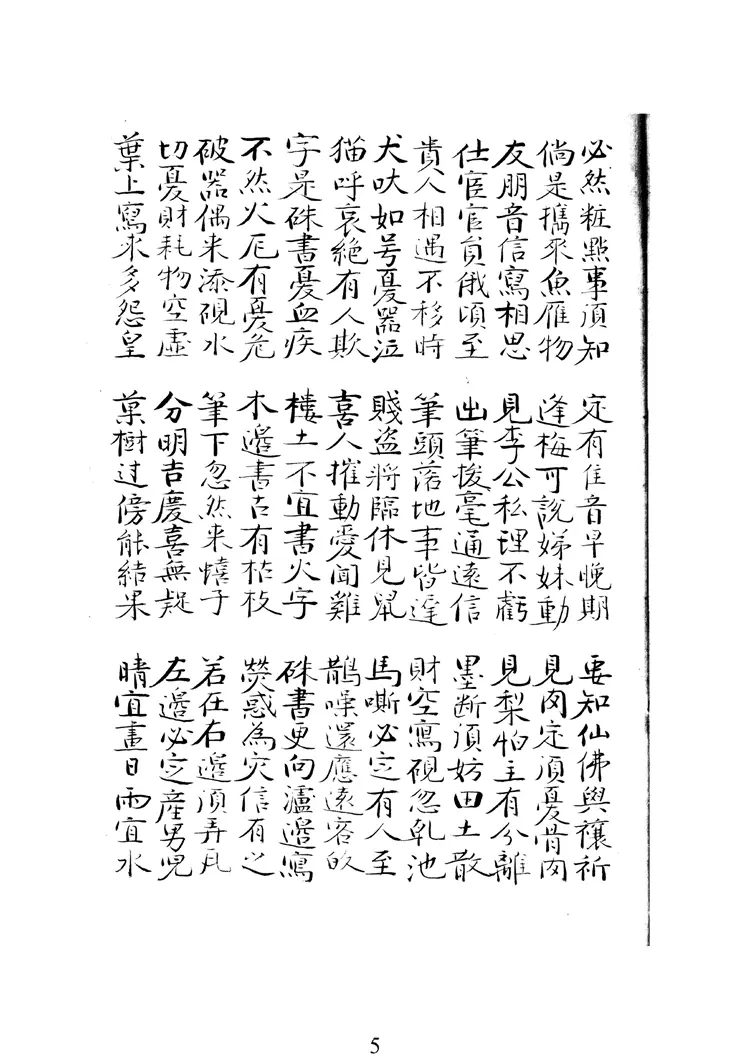 必然粧點事須知 定有佳音早晚期 要知仙佛與禳祈
倘是攜來魚雁物 逢梅可說娣妹動 見肉定須憂骨肉
友朋音信寫相思 見李公私理不虧 見梨怕主有分離
仕宦官員俄頃至 出筆拔毫通遠信 墨断須妨田土散
貴人相遇不移時 筆頭落地事皆遲 財空寫硯忽乹池
犬吠如号憂器泣 賤盗將臨休見鼠 馬嘶必定有人至
猫呼哀絶有人欺 喜人摧動愛聞雞 鵲噪還應遠客的
字是硃書憂血疾 楼土不宜書火字 硃書更向瀘邊寫
不然火厄有憂危 木邊書古有枯枝 熒惑為灾信有之
破器偶来添硯水 筆下忽然来蟢子 若在右邊須弄瓦
切憂財耗物空虛 分明吉慶喜無疑 左邊必定産男兒
葉上寫來多怨皇 菓樹过傍能結果 晴宜畫日雨宜水
5